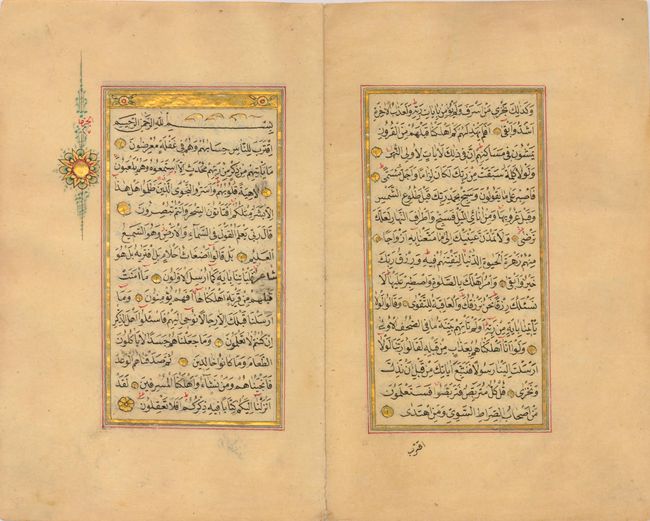 وكذلك نجزي من اسرف ولم يؤمن بايات ربه ولعذاب الاخرة
اشد وابقى افلم يهد لهم كم اهلكنا قبلهم من القرون
يمشون في مساكنهم ان في ذلك لايات لاولي النهى
ولولا كلمة سبقت من ربك لكان لزاما واجل مسمى
فاصبر على ما يقولون وسبح بحمد ربك قبل طلوع الشمس
وقبل غروبها ومن انائ الليل فسبح واطراف النهار لعلك
ترضى ولا تمدن عينيك الى ما متعنا به ازواجا
منهم زهرة الحيوة الدنيا لنفتنهم فيه ورزق ربك
خير وابقى وامر اهلك بالصلوة واصطبر عليها لا
نسئلك رزقا نحن نرزقك والعاقبة للتقوى وقالوا لولا
ياتينا باية من ربه اولم تاتهم بينة ما في الصحف الاولى
ولو انا اهلكناهم بعذاب من قبله لقالوا ربنا لولا
ارسلت الينا رسولا فنتبع اياتك من قبل ان نذل
ونخزى قل كل متربص فتربصوا فستعلمون
من اصحاب الصراط السوي ومن اهتدى
اقترب
بسم الله الرحمن الرحيم
اقترب للناس حسابهم وهم في غفلة معرضون
ما ياتيهم من ذكر من ربهم محدث الا استمعوه وهم يلعبون
لاهية قلوبهم واسروا النجوى الذين ظلموا هل هذا
الا بشر مثلكم افتاتون السحر وانتم تبصرون
قال ربي يعلم القول في السماء والارض وهو السميع
العليم بل قالوا اضغاث احلام بل افتريه بل هو
شاعر فلياتنا باية كما ارسل الاولون ما امنت
قبلهم من قرية اهلكناها افهم يؤمنون وما
ارسلنا قبلك الا رجالا نوحي اليهم فاسئلوا اهل الذكر
ان كنتم لا تعلمون وما جعلناهم جسدا لا ياكلون
الطعام وما كانوا خالدين ثم صدقناهم الوعد
فانجيناهم ومن نشاء واهلكنا المسرفين لقد
انزلنا اليكم كتابا فيه ذكركم افلا تعقلون